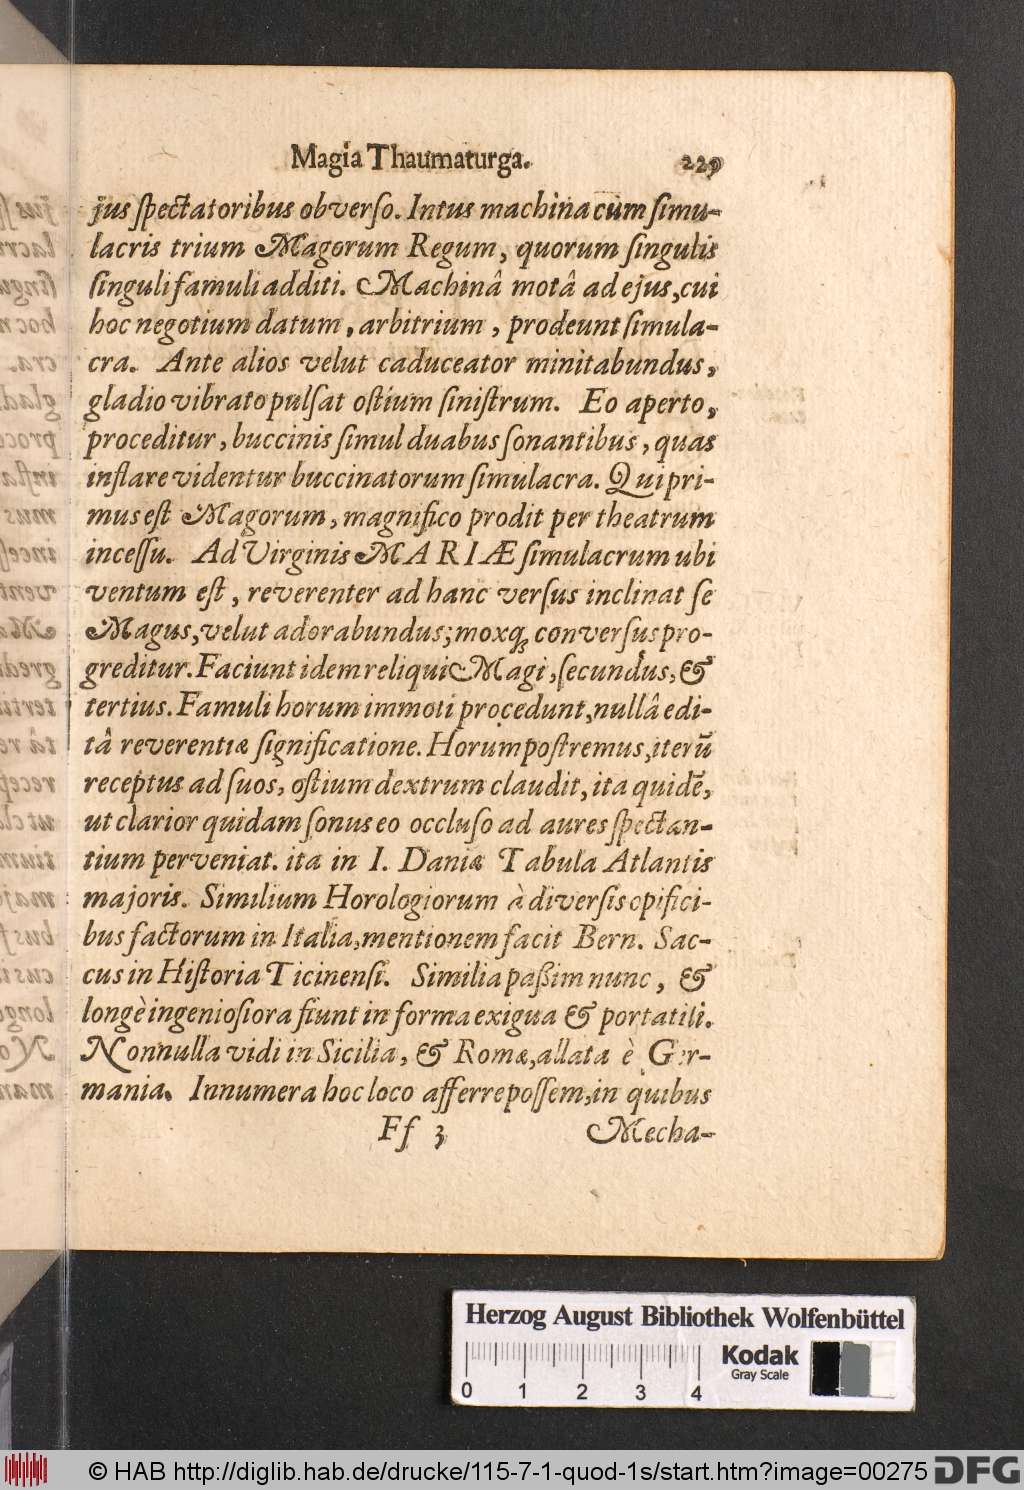 Magia Thaumaturga. 229
jus spectatoribus obverso. Intus machina cum simu-
lacris trium Magorum Regum, quorum singulis
singuli famuli additi. Machinâ motâ ad ejus, cui
hoc negotium datum, arbitrium, prodeunt simula-
cra. Ante alios velut caduceator minitabundus,
gladio vibrato pulsat ostium sinistrum. Eo aperto,
proceditur, buccinis simul duabus sonantibus, quas
inflare videntur buccinatorum simulacra. Qui pri-
mus est Magorum, magnifico prodit per theatrum
incessu. Ad Virginis MARIÆ simulacrum ubi
ventum est, reverenter ad hanc versus inclinat se
Magus, velut adorabundus; moxq; conversus pro-
greditur. Faciunt idem reliqui Magi, secundus, &
tertius. Famuli horum immoti procedunt, nullâ edi-
tâ reverentiæ significatione. Horum postremus, iterũ
receptus ad suos, ostium dextrum claudit, ita quidẽ,
ut clarior quidam sonus eo occluso ad aures spectan-
tium perveniat. ita in I. Daniæ Tabula Atlantis
majoris. Similium Horologiorum à diversis opifici-
bus factorum in Italia, mentionem facit Bern. Sac-
cus in Historia Ticinensi. Similia paßim nunc, &
longè ingeniosiora fiunt in forma exigua & portatili.
Nonnulla vidi in Sicilia, & Romæ, allata è Ger-
mania. Innumera hoc loco afferre possem, in quibus
Ff 3 Mecha-
Herzog August Bibliothek Wolfenbüttel
Kodak
Gray Scale
0 1 2 3 4
© HAB http://diglib.hab.de/drucke/115-7-1-quod-1s/start.htm?image=00275 DFG